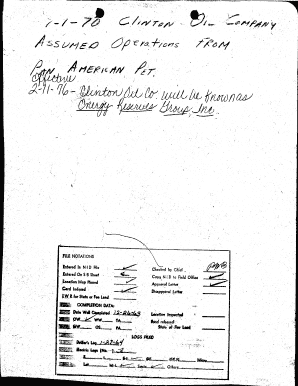 1-1-70 Clinton Oil Company
Assumed Operations from
Pan American Pet.
Effective
2-11-76 - Clinton Oil Co. will be known as
Energy Reserves Group, Inc.
FILE NOTATIONS
Entered in NID File
Entered On S R Sheet
Location Map Pinned
Card Indexed
I W R for State or Fee Land
Checked by Chief
Copy NID to Field Office
Approval Letter
Disapproval Letter
COMPLETION DATA:
Date Well Completed 12-26-63
OW WW TA
GW OS PA
Location Inspected
Bond released
State of Fee Land
LOGS FILED
Driller's Log 1-27-64
Electric Logs (No.)